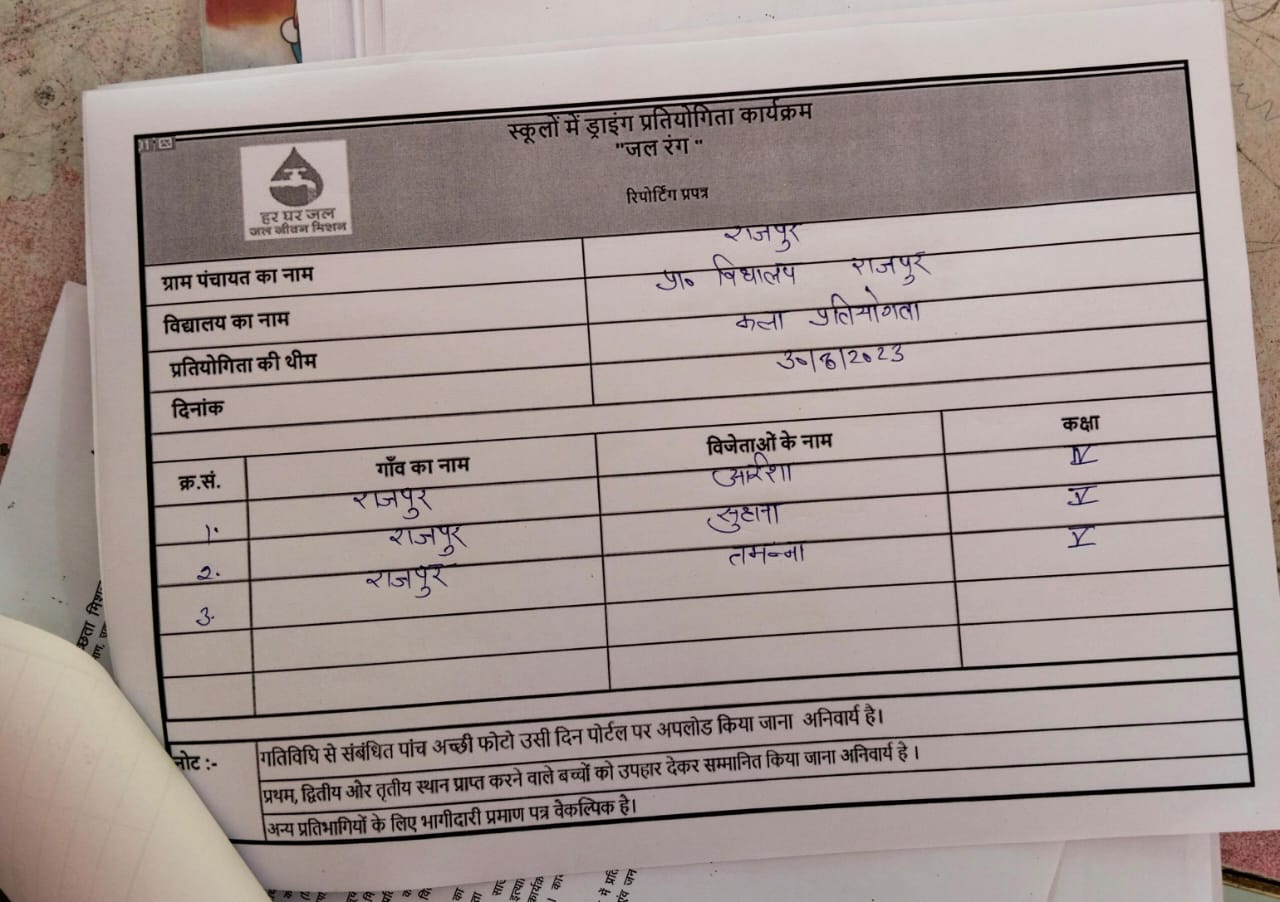 स्कूलों में ड्राइंग प्रतियोगिता कार्यक्रम
"जल रंग "
रिपोर्टिंग प्रपत्र
हर घर जल
जल जीवन मिशन
ग्राम पंचायत का नाम राजपुर
विद्यालय का नाम प्रा० विधालय राजपुर
प्रतियोगिता की थीम कला प्रतियोगता
दिनांक 30/8/2023
क्र.सं. गाँव का नाम विजेताओं के नाम कक्षा
1. राजपुर आरशा IV
2. राजपुर सुहाना V
3. राजपुर तमन्ना V
नोट :- गतिविधि से संबंधित पांच अच्छी फोटो उसी दिन पोर्टल पर अपलोड किया जाना अनिवार्य है।
प्रथम, द्वितीय ओर तृतीय स्थान प्राप्त करने वाले बच्चों को उपहार देकर सम्मानित किया जाना अनिवार्य हे ।
अन्य प्रतिभागियों के लिए भागीदारी प्रमाण पत्र वेकल्पिक हे।